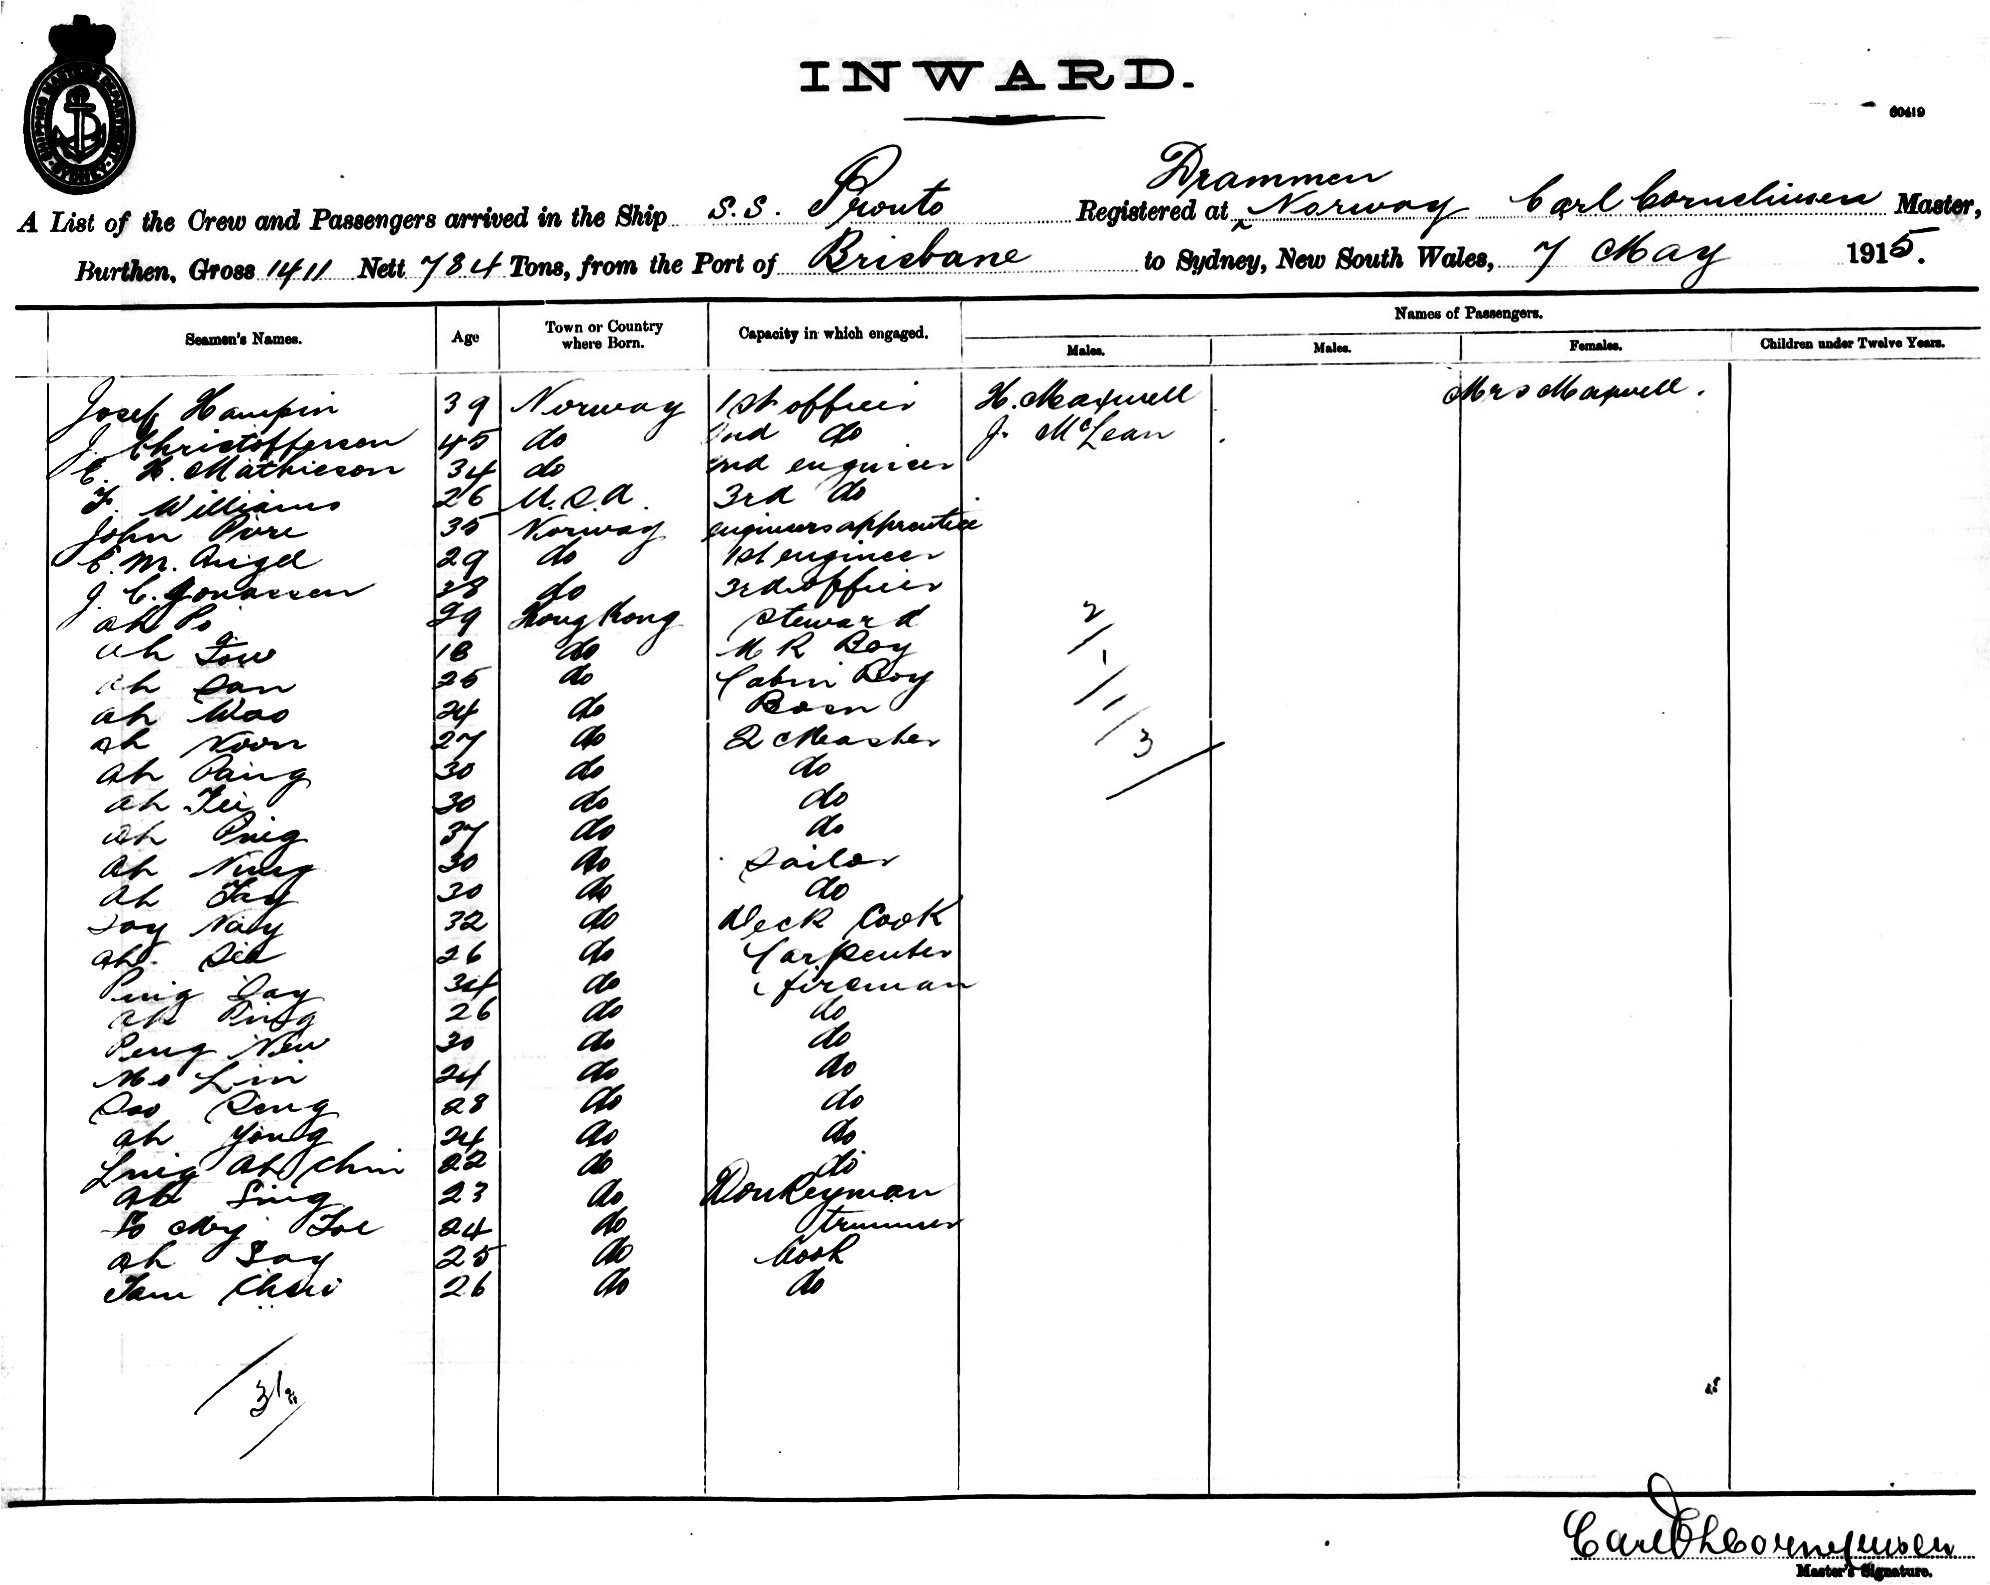 INWARD.
60419
SHIPPING MASTER'S DEPARTMENT SYDNEY
Drammen
A List of the Crew and Passengers arrived in the Ship S.S. Pronto Registered at Norway Carl Corneliussen Master,
Burthen, Gross 1411 Nett 784 Tons, from the Port of Brisbane to Sydney, New South Wales, 7 May 1915.
Seamen's Names. Age Town or Country where Born. Capacity in which engaged. Names of Passengers.
Males. Males. Females. Children under Twelve Years.
Josef 39 Norway 1st officer H. Maxwell Mrs Maxwell.
J. Christoffersen 45 do 2nd do J. McLean
E. H. Mathieson 34 do 2nd engineer
F. Williams 26 U.S.A. 3rd do
John 35 Norway engineers apprentice
E. M. Angel 29 do 1st engineer
J. C. Jonassen 38 do 3rd officer
ah Po 29 Hong Kong steward
ah Fow 18 do M R Boy
ah San 25 do Cabin Boy
ah Woo 24 do Bosn
ah Noon 27 do Q Master
ah Pang 30 do do
ah 30 do do
ah Ping 37 do do
ah Nung 30 do Sailor
ah Tay 30 do do
Nay 32 do Deck Cook
ah 26 do Carpenter
Ping Say 34 do fireman
ah Ping 26 do do
Peng New 30 do do
Mo Lin 24 do do
Soo Seng 28 do do
ah Yong 24 do do
Ah Chin 22 do do
ah Sing 23 do Donkeyman
24 do trimmer
ah Say 25 do Cook
Tam 26 do do
2/-/1/3/
Master's Signature.